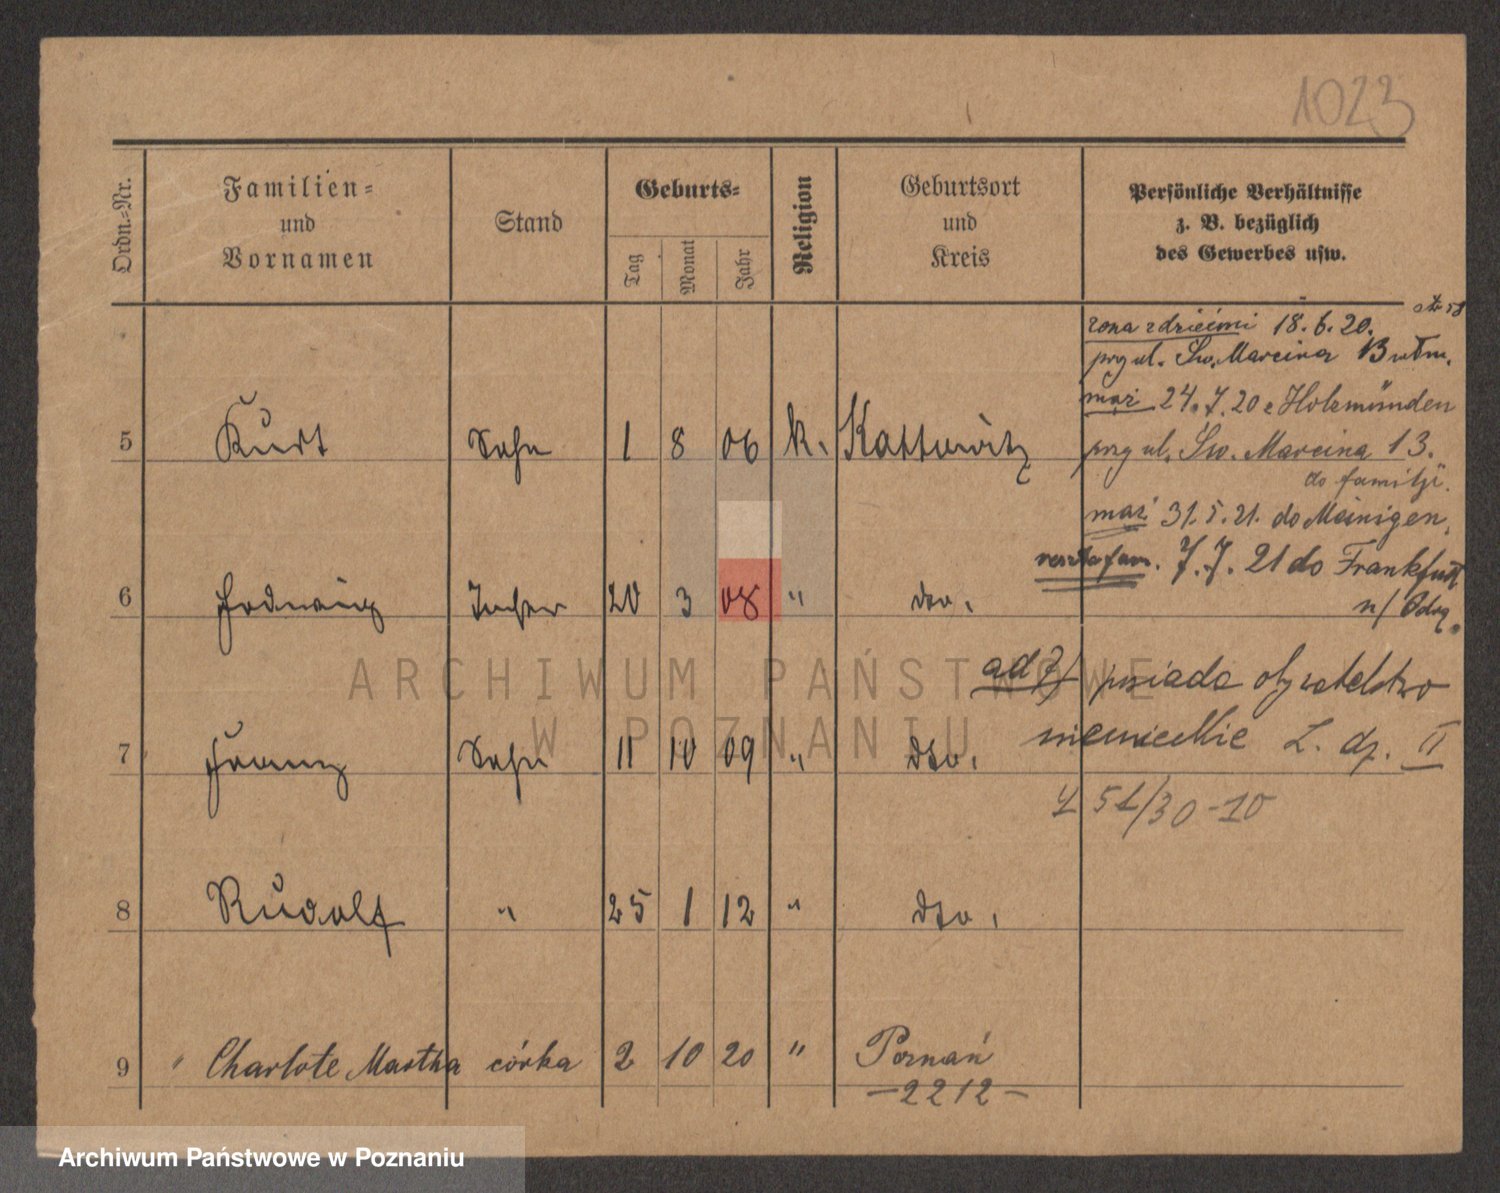 1023
Ordn.=Nr.
Familien=
und
Vornamen
Stand
Geburts=
Tag
Monat
Jahr
Religion
Geburtsort
und
Kreis
Persönliche Verhältnisse
z. B. bezüglich
des Gewerbes usw.
żona z dziećmi 18. 6. 20.
przy ul. Św. Marcina 13
mąż 24. 7. 20 z Holzmünden
przy ul. Św. Marcina 13.
do familji.
5 Kurt Sohn 1 8 06 k. Kattowitz
mąż 31. 5. 21. do Meinigen,
reszta fam. 7. 7. 21 do Frankfurt
n/ Odrą.
6 Hedwig Tochter 20 3 08 " dto.
ad 7/ posiada obywatelstwo
niemieckie L. dz. II
7 Franz Sohn 11 10 09 " dto.
51/30-10
8 Rudolf " 25 1 12 " dto.
9 " Charlote Martha córka 2 10 20 " Poznań
—2212—
ARCHIWUM PAŃSTWOWE
W POZNANIU
Archiwum Państwowe w Poznaniu